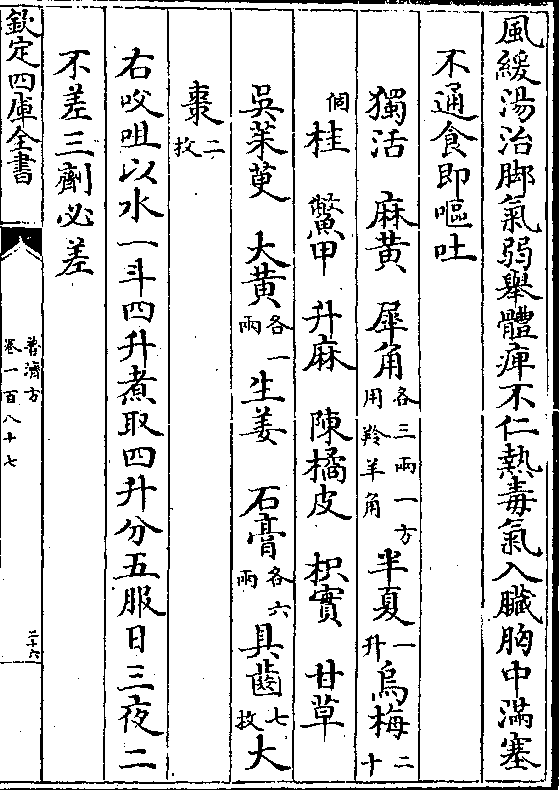 風緩湯治脚氣弱舉體痺不仁熱毒氣入臟胸中滿塞
不通食即嘔吐
獨活　麻黄　犀角各三兩一方用羚羊角　半夏一升烏梅二十
個桂　鱉甲　升麻　陳橘皮　枳實　甘草
吳茱萸　大黄各一兩生姜　石膏各六兩具齒七枚大
棗二枚
右㕮咀以水一斗四升煮取四升分五服日三夜二
不差三劑必差
欽定四庫全書
普濟方
卷一百八十七
二十六